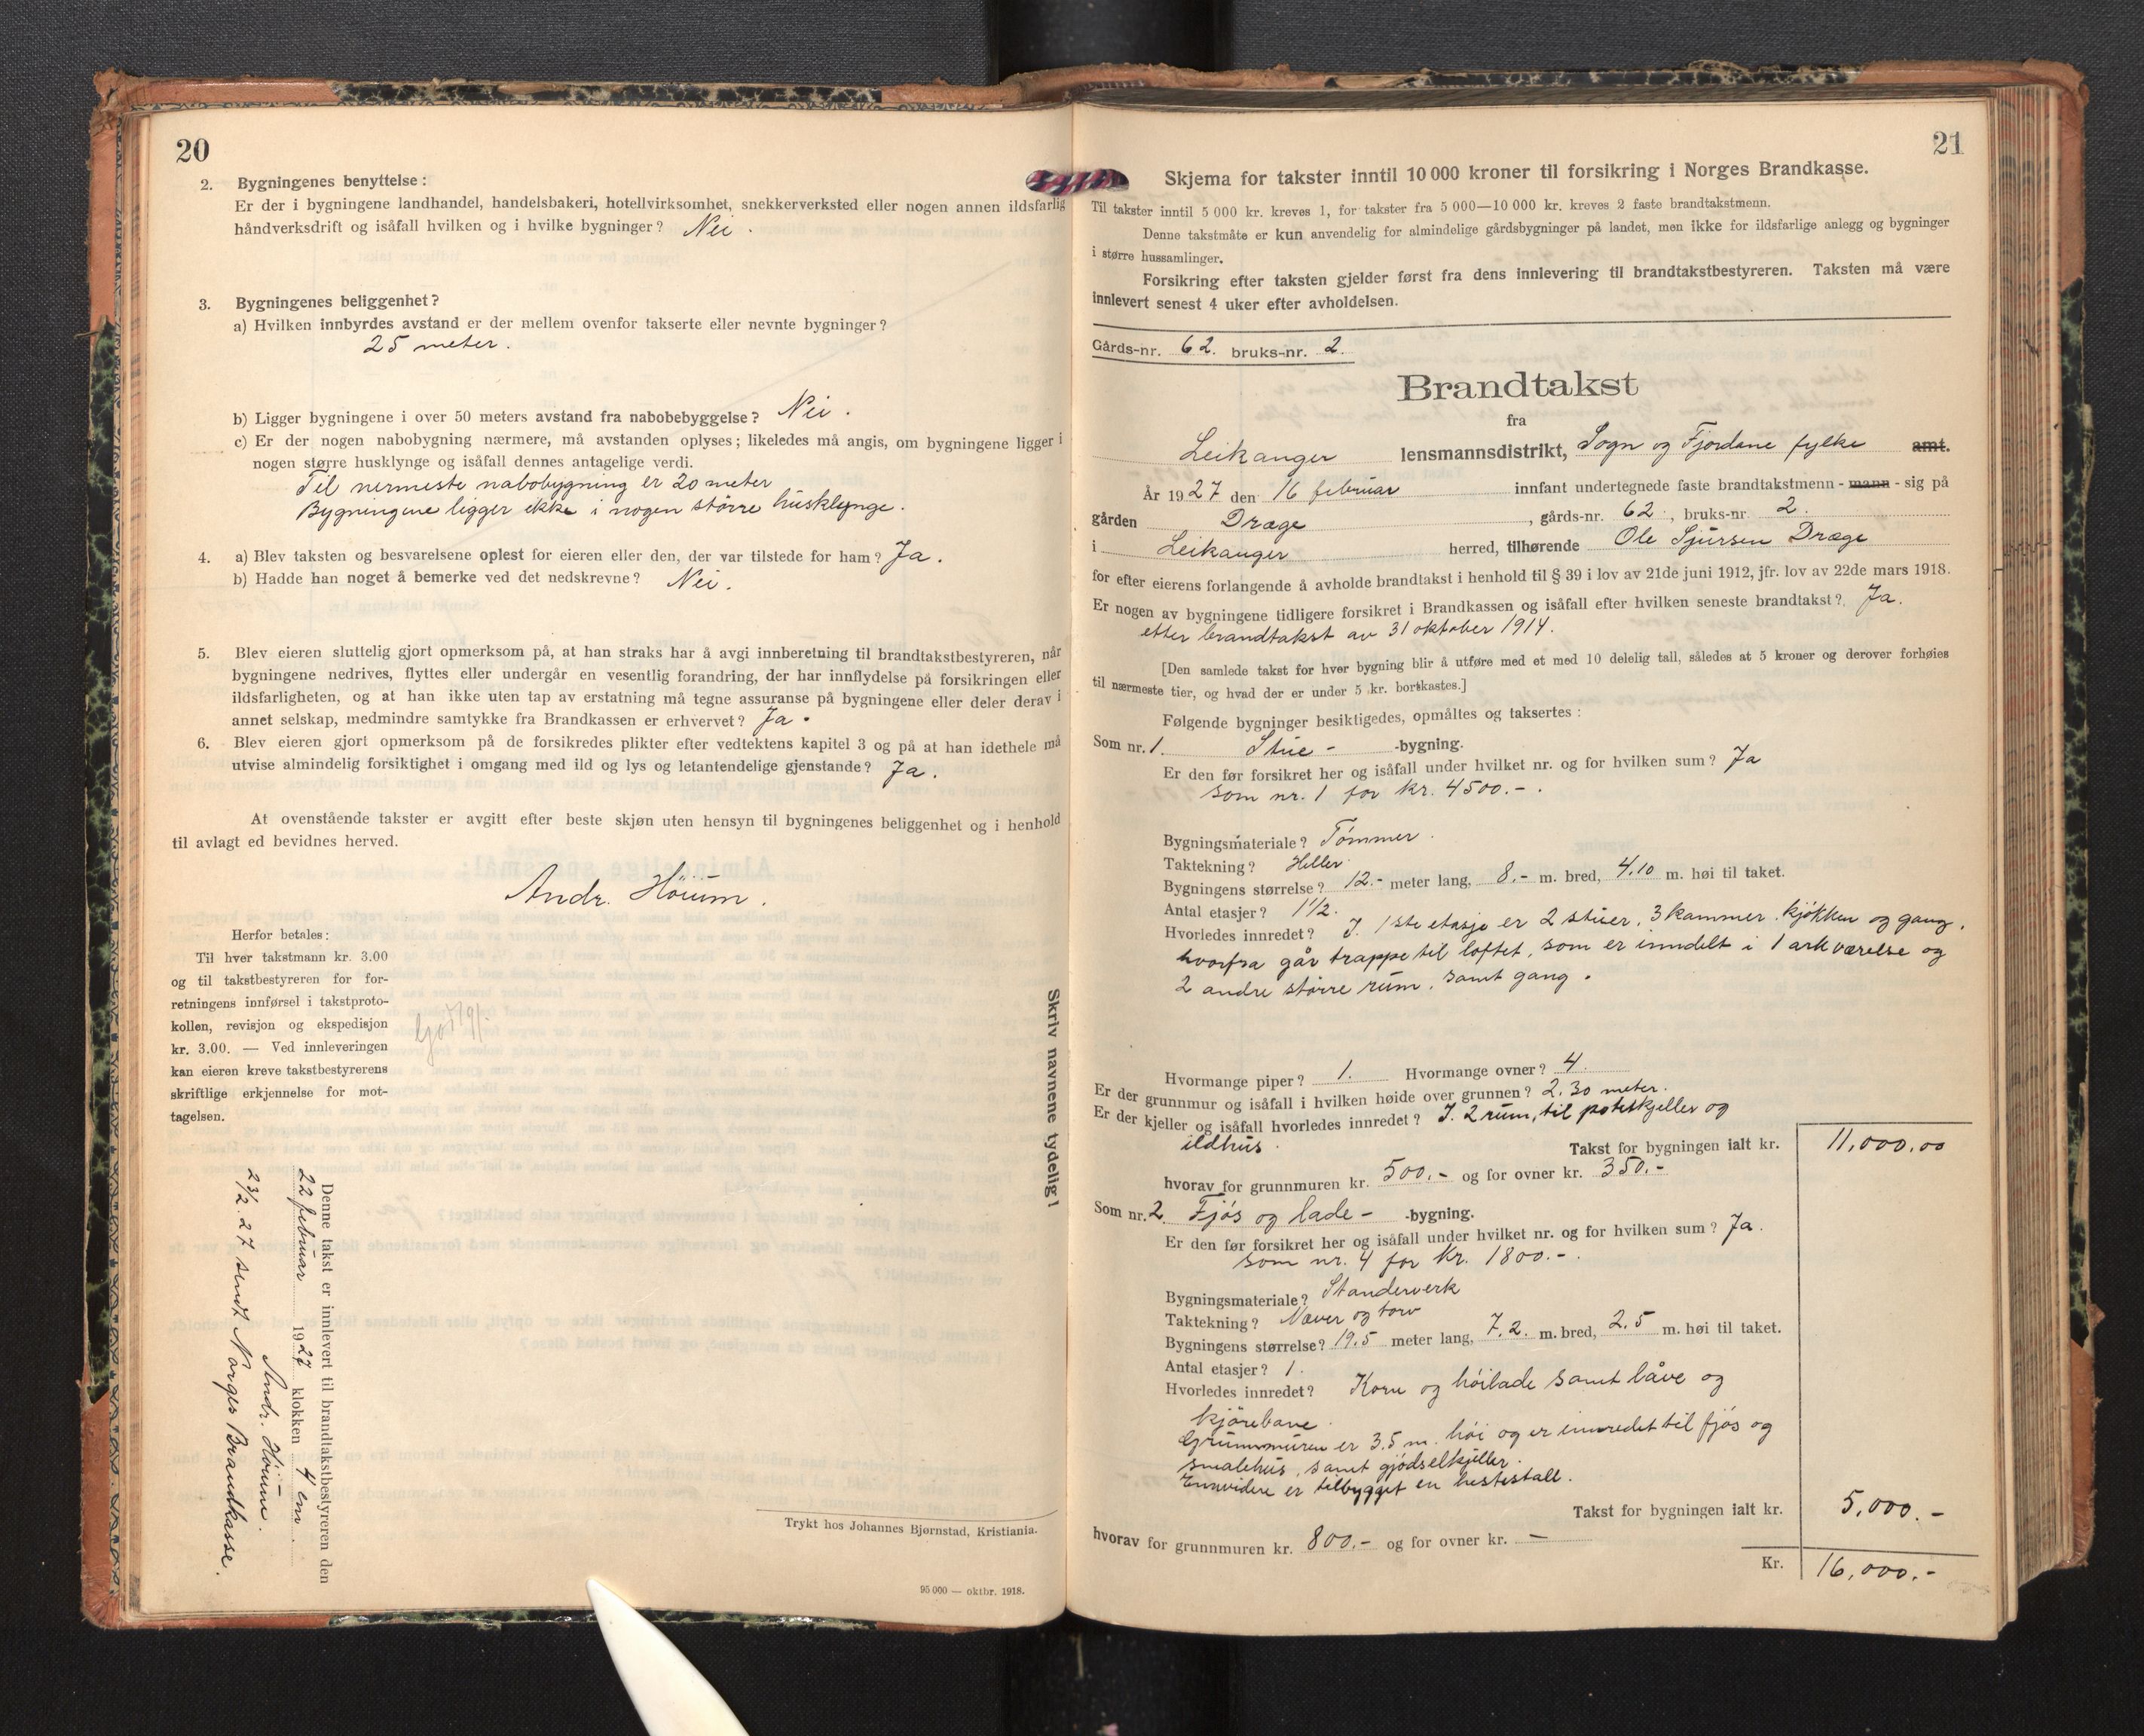 20
2. Bygningenes benyttelse:
Er der i bygningene landhandel, handelsbakeri, hotellvirksomhet, snekkerverksted eller nogen annen ildsfarlig
håndverksdrift og isåfall hvilken og i hvilke bygninger? Nei.
3. Bygningenes beliggenhet?
a) Hvilken innbyrdes avstand er der mellem ovenfor takserte eller nevnte bygninger?
25 meter.
b) Ligger bygningene i over 50 meters avstand fra nabobebyggelse? Nei.
c) Er der nogen nabobygning nærmere, må avstanden oplyses; likeledes må angis, om bygningene ligger i
nogen større husklynge og isåfall dennes antagelige verdi.
Til nermeste nabobygning er 20 meter
Bygningene ligger ikke i nogen större husklynge.
4. a) Blev taksten og besvarelsene oplest for eieren eller den, der var tilstede for ham? Ja.
b) Hadde han noget å bemerke ved det nedskrevne? Nei.
5. Blev eieren sluttelig gjort opmerksom på, at han straks har å avgi innberetning til brandtakstbestyreren, når
bygningene nedrives, flyttes eller undergår en vesentlig forandring, der har innflydelse på forsikringen eller
ildsfarligheten, og at han ikke uten tap av erstatning må tegne assuranse på bygningene eller deler derav i
annet selskap, medmindre samtykke fra Brandkassen er erhvervet? Ja.
6. Blev eieren gjort opmerksom på de forsikredes plikter efter vedtektens kapitel 3 og på at han idethele må
utvise almindelig forsiktighet i omgang med ild og lys og letantendelige gjenstande? Ja.
At ovenstående takster er avgitt efter beste skjøn uten hensyn til bygningenes beliggenhet og i henhold
til avlagt ed bevidnes herved.
Andr. Höium.
Herfor betales:
Til hver takstmann kr. 3.00
og til takstbestyreren for for-
retningens innførsel i takstproto-
kollen, revisjon og ekspedisjon
kr. 3.00. — Ved innleveringen
kan eieren kreve takstbestyrerens
skriftlige erkjennelse for mot-
tagelsen.
Skriv navnene tydelig!
Denne takst er innlevert til brandtakstbestyreren den
22 februar 1927 klokken 4 em.
Andr. Höium.
23/2. 27 sendt Norges Brandkasse.
Trykt hos Johannes Bjørnstad, Kristiania.
95 000 — oktbr. 1918.
21
Skjema for takster inntil 10 000 kroner til forsikring i Norges Brandkasse.
Til takster inntil 5 000 kr. kreves 1, for takster fra 5 000—10 000 kr. kreves 2 faste brandtakstmenn.
Denne takstmåte er kun anvendelig for almindelige gårdsbygninger på landet, men ikke for ildsfarlige anlegg og bygninger
i større hussamlinger.
Forsikring efter taksten gjelder først fra dens innlevering til brandtakstbestyreren. Taksten må være
innlevert senest 4 uker efter avholdelsen.
Gårds-nr. 62. bruks-nr. 2.
Brandtakst
fra
Leikanger lensmannsdistrikt, Sogn og Fjordane fylke amt.
År 1927 den 16 februar innfant undertegnede faste brandtakstmenn - mann - sig på
gården Dræge, gårds-nr. 62, bruks-nr. 2.
i Leikanger herred, tilhørende Ole Sjursen Dræge
for efter eierens forlangende å avholde brandtakst i henhold til § 39 i lov av 21de juni 1912, jfr. lov av 22de mars 1918.
Er nogen av bygningene tidligere forsikret i Brandkassen og isåfall efter hvilken seneste brandtakst? Ja.
etter brandtakst av 31 oktober 1914.
[Den samlede takst for hver bygning blir å utføre med et med 10 delelig tall, således at 5 kroner og derover forhøies
til nærmeste tier, og hvad der er under 5 kr. bortkastes.]
Følgende bygninger besiktigedes, opmåltes og taksertes:
Som nr. 1. Stue- -bygning.
Er den før forsikret her og isåfall under hvilket nr. og for hvilken sum? Ja
som nr. 1 for kr. 4500.-.
Bygningsmateriale? Tömmer.
Taktekning? Heller
Bygningens størrelse? 12.- meter lang, 8.- m. bred, 4.10 m. høi til taket.
Antal etasjer? 1 1/2.
Hvorledes innredet? I. 1ste etasje er 2 stuer, 3 kammer, kjökken og gang,
hvorfra går trappe til loftet, som er inndelt i 1 arkværelse og
2 andre större rum, samt gang.
Hvormange piper? 1. Hvormange ovner? 4.
Er der grunnmur og isåfall i hvilken høide over grunnen? 2.30 meter.
Er der kjeller og isåfall hvorledes innredet? I. 2 rum, til potetkjeller og
ildhus. Takst for bygningen ialt kr. 11,000.00
hvorav for grunnmuren kr. 500.- og for ovner kr. 350.-
Som nr. 2 Fjös og lade- -bygning.
Er den før forsikret her og isåfall under hvilket nr. og for hvilken sum? Ja.
som nr. 4 for kr. 1800.-.
Bygningsmateriale? Standerverk
Taktekning? Næver og torv
Bygningens størrelse? 19.5 meter lang, 7.2. m. bred, 2.5 m. høi til taket.
Antal etasjer? 1.
Hvorledes innredet? Korn og höilade samt låve og
kjörebane.
Grunnmuren er 3.5 m. höi og er innredet til fjös og
smalehus, samt gjödselkjeller.
Ennvidere er tilbygget en hestestall.
Takst for bygningen ialt kr. 5,000.-
hvorav for grunnmuren kr. 800.- og for ovner kr. —
Kr. 16,000.-